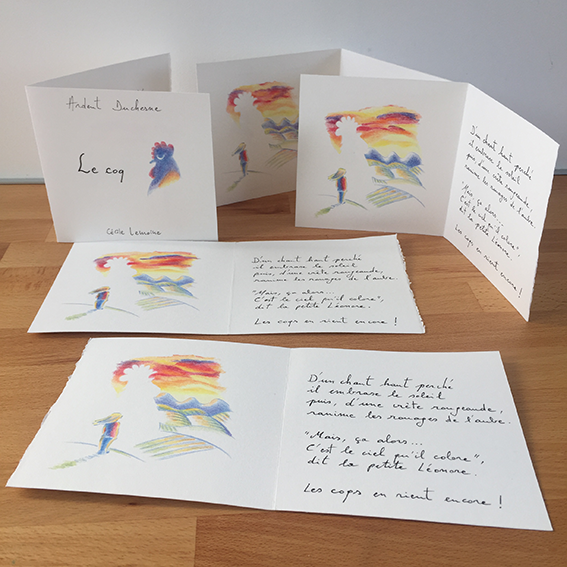 Ardent Duchesne
Le coq
D'un chant haut perché
il embrase le soleil
puis, d'une crête rougeaude,
ranime les rouages de l'aube.
"Mais, ça alors...
C'est le ciel qu'il colore",
dit la petite Léonore.
Les coqs en rient encore !
D'un chant haut perché
il embrase le soleil
puis, d'une crête rougeaude,
ranime les rouages de l'aube.
"Mais, ça alors...
C'est le ciel qu'il colore",
dit la petite Léonore.
Les coqs en rient encore !
D'un chant haut perché
il embrase le soleil
puis, d'une crête rougeaude,
ranime les rouages de l'aube.
"Mais, ça alors...
C'est le ciel qu'il colore",
dit la petite Léonore.
Les coqs en rient encore !